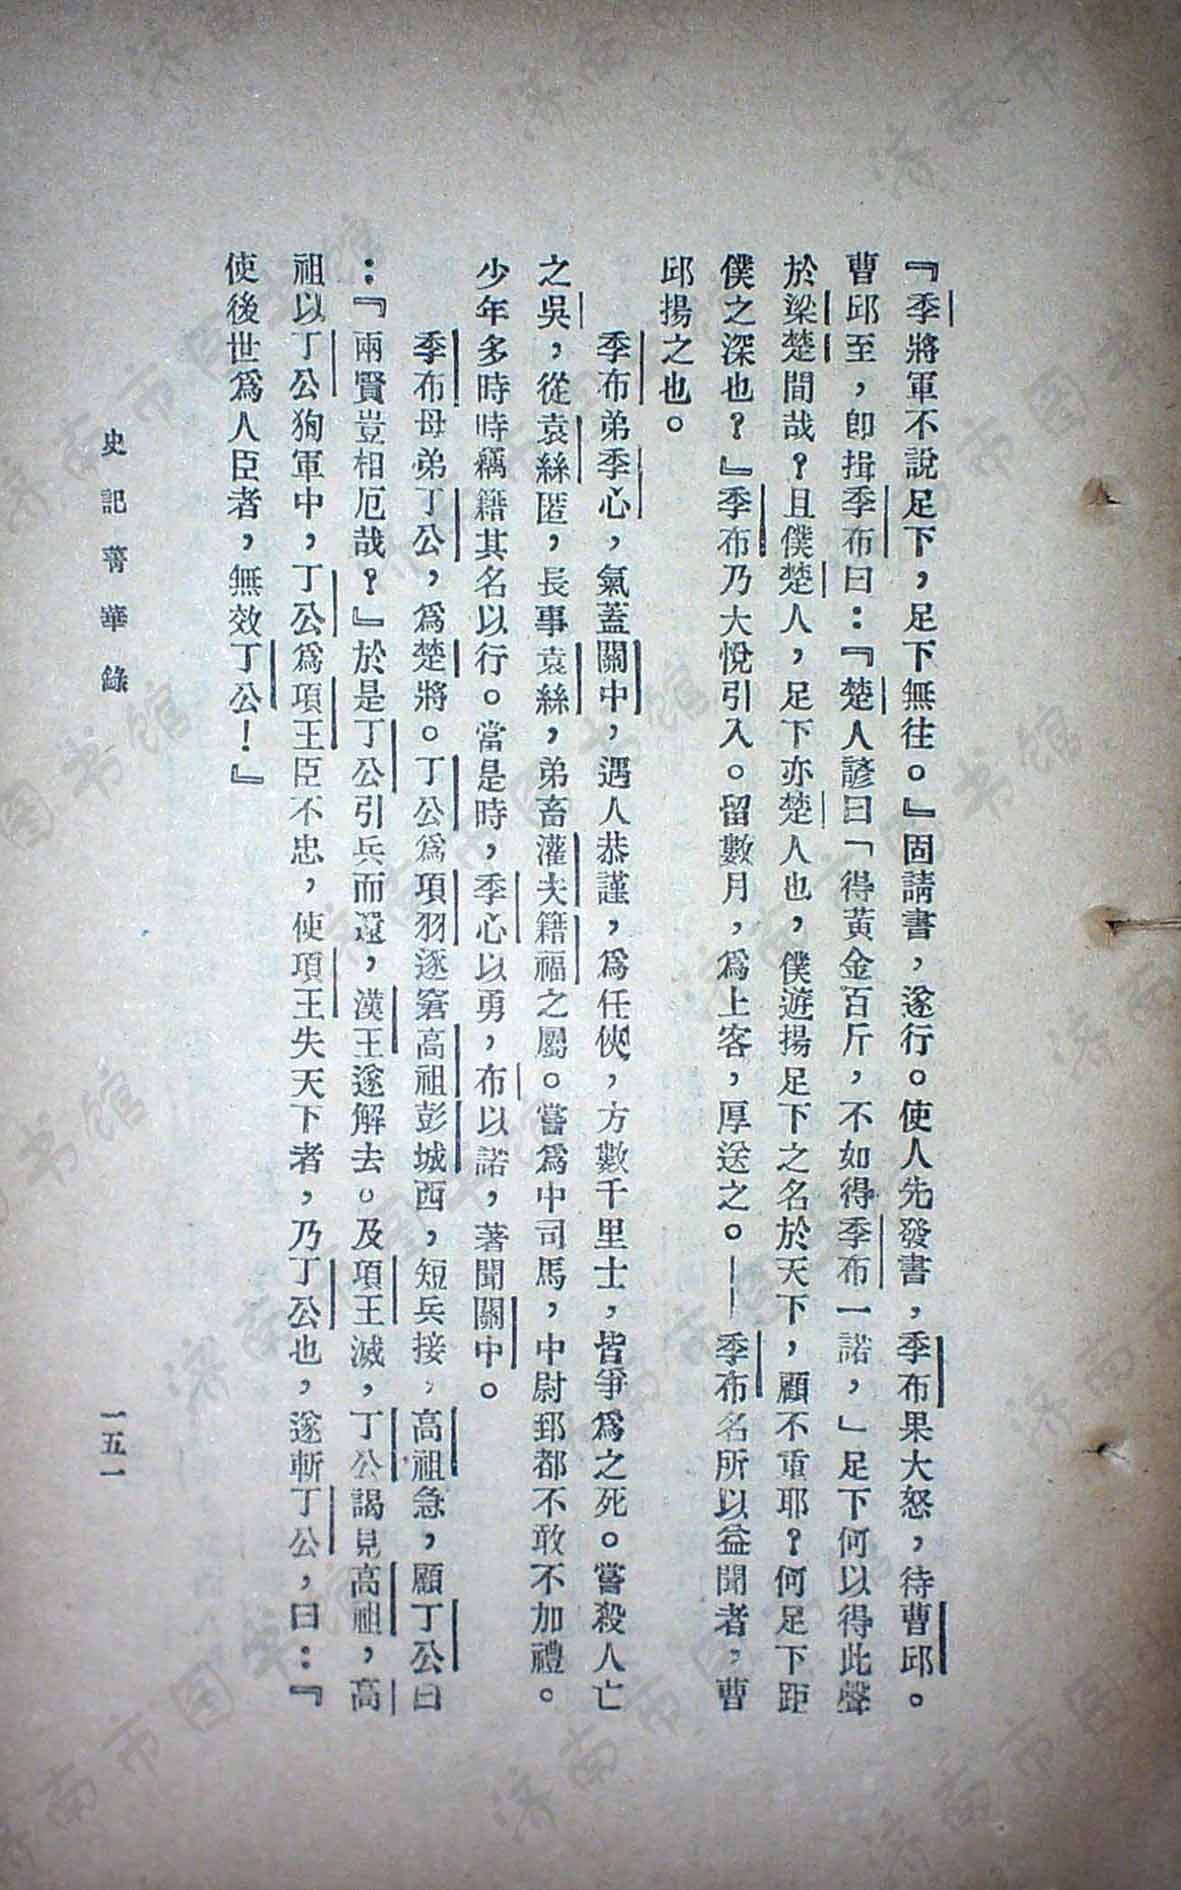 『季將軍不說足下，足下無往。』固請書，遂行。使人先發書，季布果大怒，待曹邱。
曹邱至，卽揖季布曰：『楚人諺曰「得黃金百斤，不如得季布一諾，」足下何以得此聲
於梁楚間哉？且僕楚人，足下亦楚人也，僕遊揚足下之名於天下，顧不重耶？何足下距
僕之深也？』季布乃大悅引入。留數月，爲上客，厚送之。——季布名所以益聞者，曹
邱揚之也。
季布弟季心，氣蓋關中，遇人恭謹，爲任俠，方數千里士，皆爭爲之死。嘗殺人亡
之吳，從袁絲匿，長事袁絲，弟畜灌夫籍福之屬。嘗爲中司馬，中尉郅都不敢不加禮。
少年多時時竊籍其名以行。當是時，季心以勇，布以諾，著聞關中。
季布母弟丁公，爲楚將。丁公爲項羽逐窘高祖彭城西，短兵接，高祖急，顧丁公曰
：『兩賢豈相厄哉？』於是丁公引兵而還，漢王遂解去。及項王滅，丁公謁見高祖，高
祖以丁公狥軍中，丁公爲項王臣不忠，使項王失天下者，乃丁公也，遂斬丁公，曰：『
使後世爲人臣者，無效丁公！』
史記菁華錄
一五一
济南市图书馆